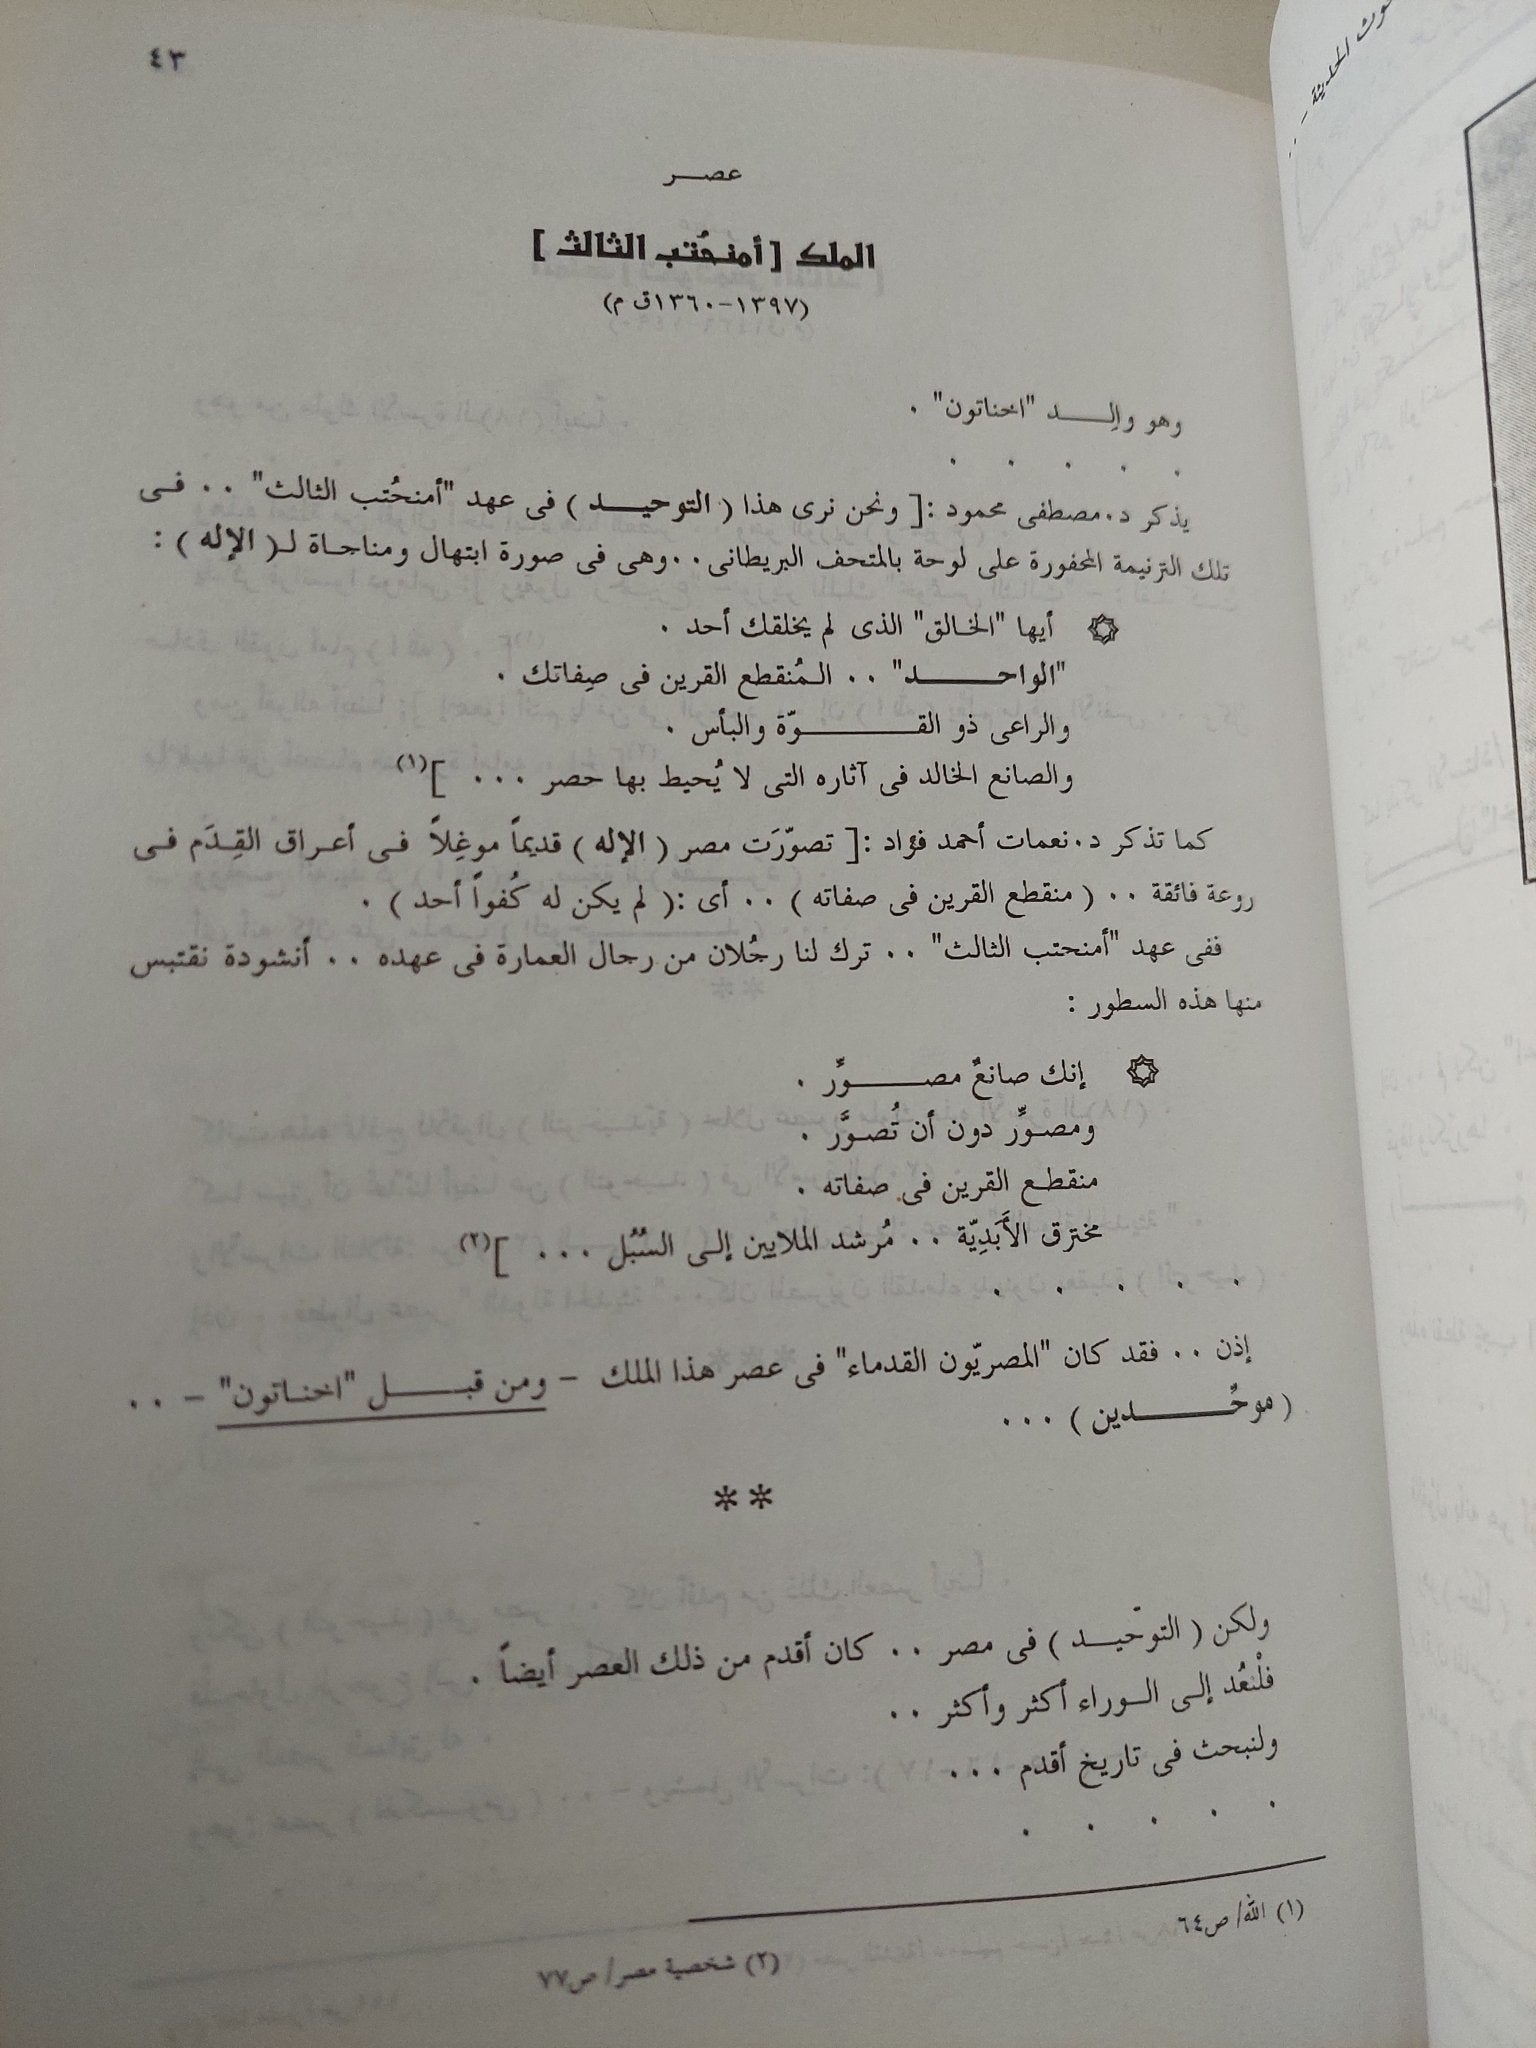 ٤٣
عصر
الملك [ أمنحُتب الثالث ]
(١٣٩٧-١٣٦٠ق م)
وهو والِد "اخناتون" .
. . . . .
يذكر د.مصطفى محمود :[ ونحن نرى هذا ( التوحيد ) فى عهد "أمنحُتب الثالث" .. فى
تلك الترنيمة المحفورة على لوحة بالمتحف البريطانى ..وهى فى صورة ابتهال ومناجاة لـ( الإله ) :
۞ أيها "الخالق" الذى لم يخلقك أحد .
"الواحد" .. المُنقطع القرين فى صِفاتك .
والراعى ذو القوّة والبأس .
والصانع الخالد فى آثاره التى لا يُحيط بها حصر ... ](١)
كما تذكر د.نعمات أحمد فؤاد :[ تصوّرَت مصر ( الإله ) قديماً موغِلاً فى أعراق القِدَم فى
روعة فائقة .. ( منقطع القرين فى صفاته ) .. أى :( لم يكن له كُفواً أحد ) .
ففى عهد "أمنحتب الثالث" .. ترك لنا رجُلان من رجال العمارة فى عهده .. أنشودة نقتبس
منها هذه السطور :
۞ إنك صانعٌ مصوِّر .
ومصوِّر دون أن تُصوَّر .
منقطع القرين فى صفاته .
مخترق الأَبَدِيّة .. مُرشد الملايين إلى السُبُل ... ](٢)
. . . . .
إذن .. فقد كان "المصريّون القدماء" فى عصر هذا الملك - ومن قبل "اخناتون" - ..
( موحِّدين ) ...
**
ولكن ( التوحيد ) فى مصر .. كان أقدم من ذلك العصر أيضاً .
فلْنعُد إلى الوراء أكثر وأكثر ..
ولنبحث فى تاريخ أقدم ...
. . . . .
(١) الله/ ص٦٤
(٢) شخصية مصر/ ص٧٧